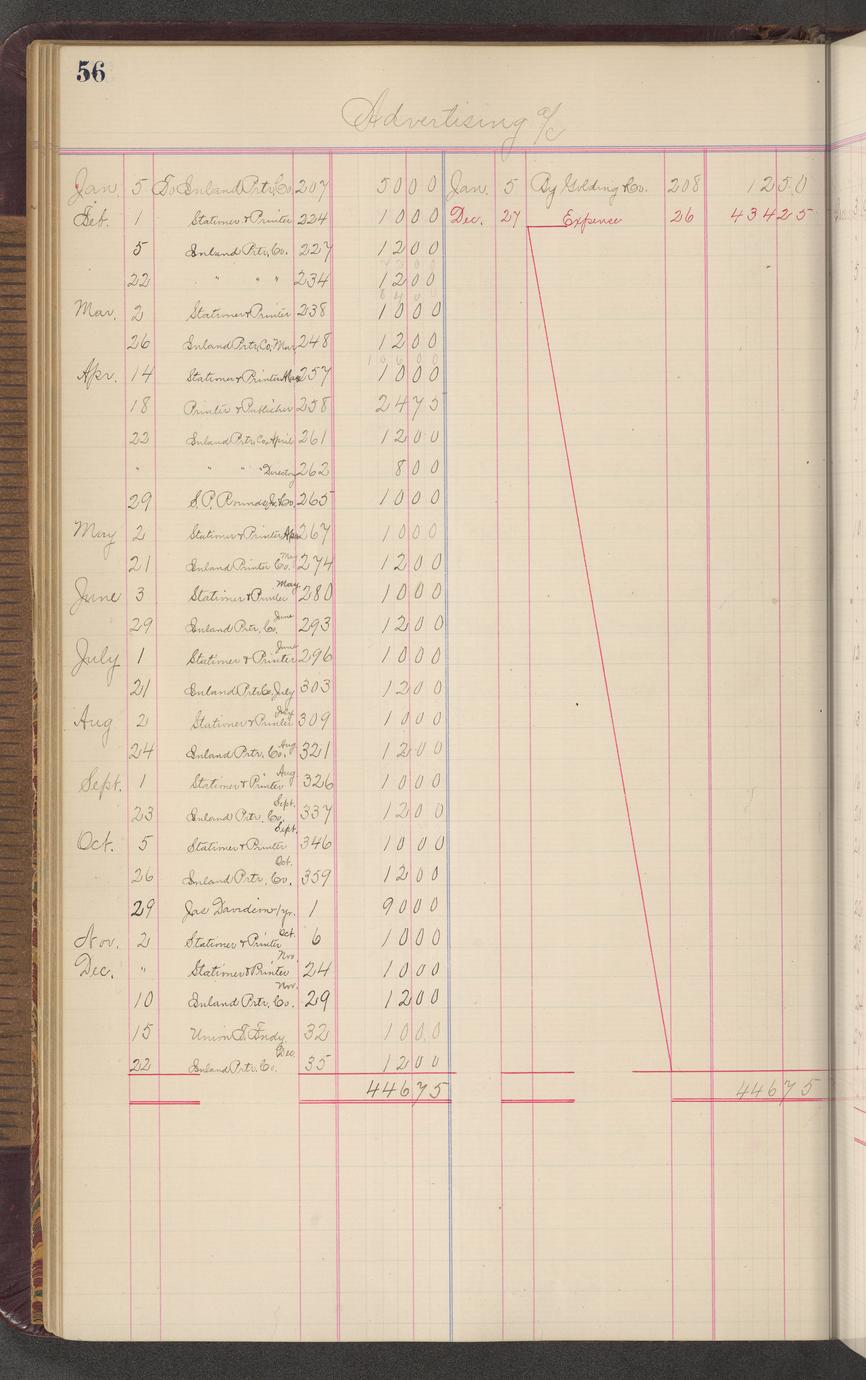 56
Advertising a/c
Jan. 5 To Inland Prtr. Co. 207 50 00 Jan. 5 By Golding & Co. 208 12 50
Feb. 1 Stationer & Printer 224 10 00 Dec. 27 Expense 26 434 25
5 Inland Prtr. Co. 227 12 00
22 " " " 234 12 00
Mar. 2 Stationer & Printer 238 10 00
26 Inland Prtr. Co. Mar. 248 12 00
Apr. 14 Stationer & Printer Mar 257 10 00
18 Printer & Publisher 258 24 75
22 Inland Prtr. Co. April 261 12 00
" " " " Directory 262 8 00
29 S. P. Rounds Jr. & Co. 265 10 00
May 2 Stationer & Printer Apr. 267 10 00
21 Inland Printer Co. May 274 12 00
June 3 Stationer & Printer May 280 10 00
29 Inland Prtr. Co. June 293 12 00
July 1 Stationer & Printer June 296 10 00
21 Inland Prtr Co. July 303 12 00
Aug 2 Stationer & Printer July 309 10 00
24 Inland Prtr. Co. Aug. 321 12 00
Sept. 1 Stationer & Printer Aug 326 10 00
23 Inland Prtr. Co. Sept. 337 12 00
Oct. 5 Stationer & Printer Sept. 346 10 00
26 Inland Prtr. Co. Oct. 359 12 00
29 Jas Davidson 1 yr. 1 90 00
Nov. 2 Stationer & Printer Oct. 6 10 00
Dec. " Stationer & Printer Nov. 24 10 00
10 Inland Prtr. Co. Nov. 29 12 00
15 Union T. Fndy. 32 10 00
22 Inland Prtr. Co. Dec. 35 12 00
446 75 446 75